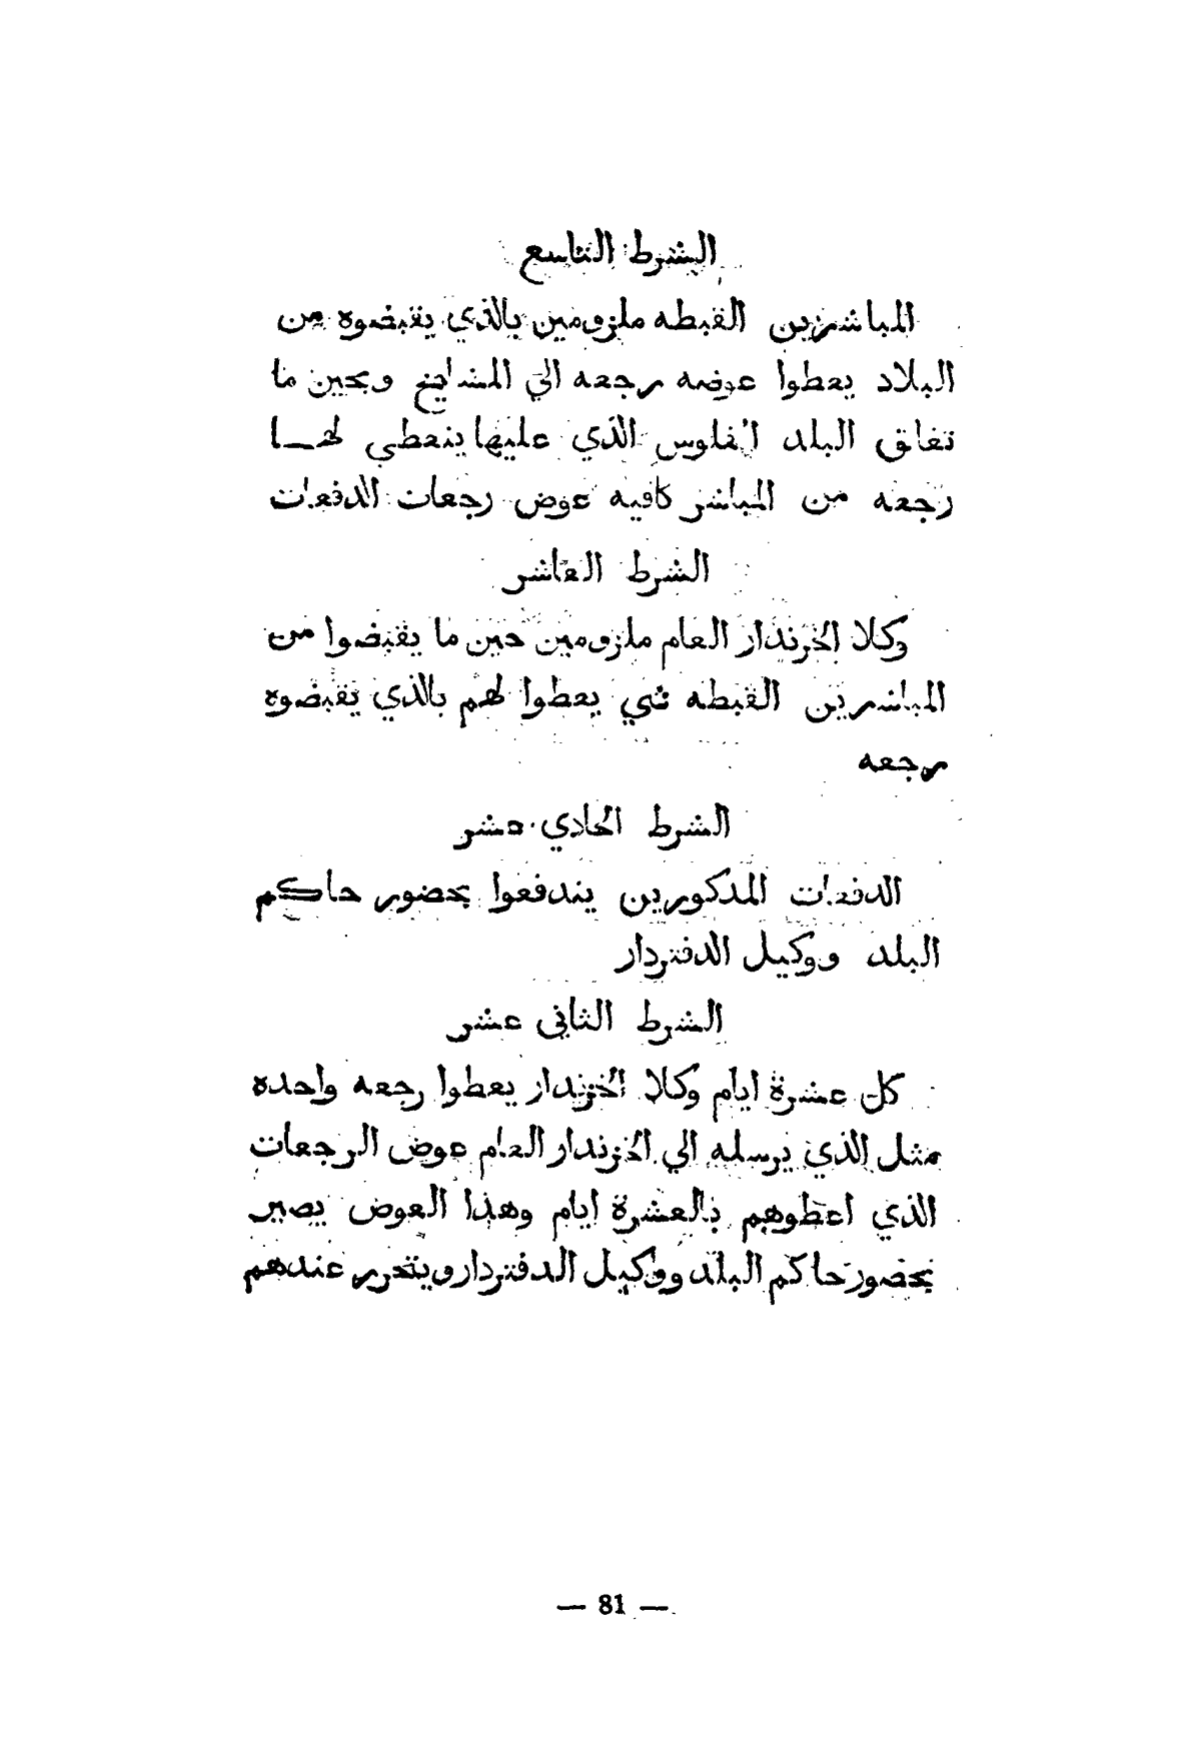 الشرط التاسع
المباشرين القبطه ملزومين بالذي يقبضوه من
البلاد يعطوا عوضه رجعه الي المشايخ وبحين ما
تغلق البلد الفلوس الذي عليها ينعطي لهـا
رجعه من المباشر كافيه عوض رجعات الدفعات
الشرط العاشر
وكلا الخزندار العام ملزومين حين ما يقبضوا من
المباشرين القبطه شي يعطوا لهم بالذي يقبضوه
رجعه
الشرط الحادي عشر
الدفعات المذكورين يندفعوا بحضور حاكم
البلد ووكيل الدفتردار
الشرط الثاني عشر
كل عشرة ايام وكلا الخزندار يعطوا رجعه واحده
مثل الذي يرسله الي الخزندار العام عوض الرجعات
الذي اعطوهم بالعشرة ايام وهذا العوض يصير
بحضور حاكم البلد ووكيل الدفتردار ويتحرر عندهم
— 81 —